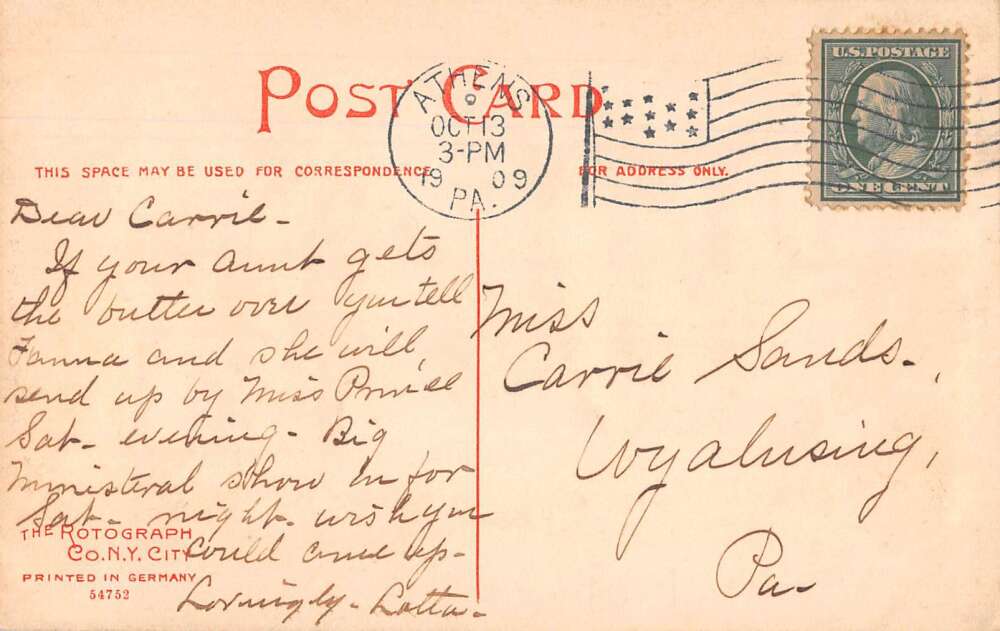 POST CARD
ATHENS
OCT 13
3-PM
1909
PA.
U.S. POSTAGE
ONE CENT
THIS SPACE MAY BE USED FOR CORRESPONDENCE
FOR ADDRESS ONLY.
Dear Carrie-
If your aunt gets
the butter over you tell
Fanna and she will,
send up by Miss
Sat- evening- Big
Ministeral show in for
Sat- night- wish you
could come up-
Lovingly- Lotta-
Miss
Carrie Sands-,
Wyalusing,
Pa-
THE ROTOGRAPH
CO. N.Y. CITY
PRINTED IN GERMANY
54752